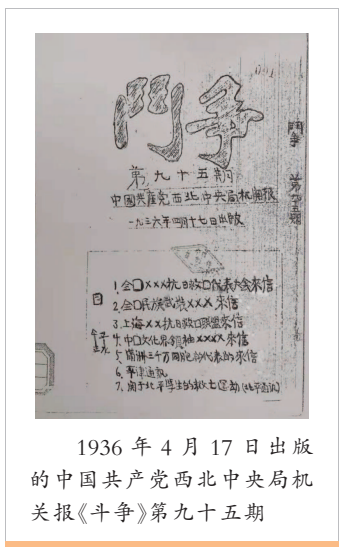 鬥争
第九十五期
中國共產党西北中央局机関报
一九三六年四月十七日出版
鬥争 第九十五期
目
1. 全口×××抗日救口代表大会來信
2. 全口民族武装×××來信
3. 上海××抗日救口联盟來信
4. 中口文化界領袖××××來信
5. 满洲三千万同胞的代表的來信
6. 平津通訊
7. 関于北平學生的救亡运动(北平通訊)
1936 年 4 月 17 日出版
的中国共产党西北中央局机
关报《斗争》第九十五期